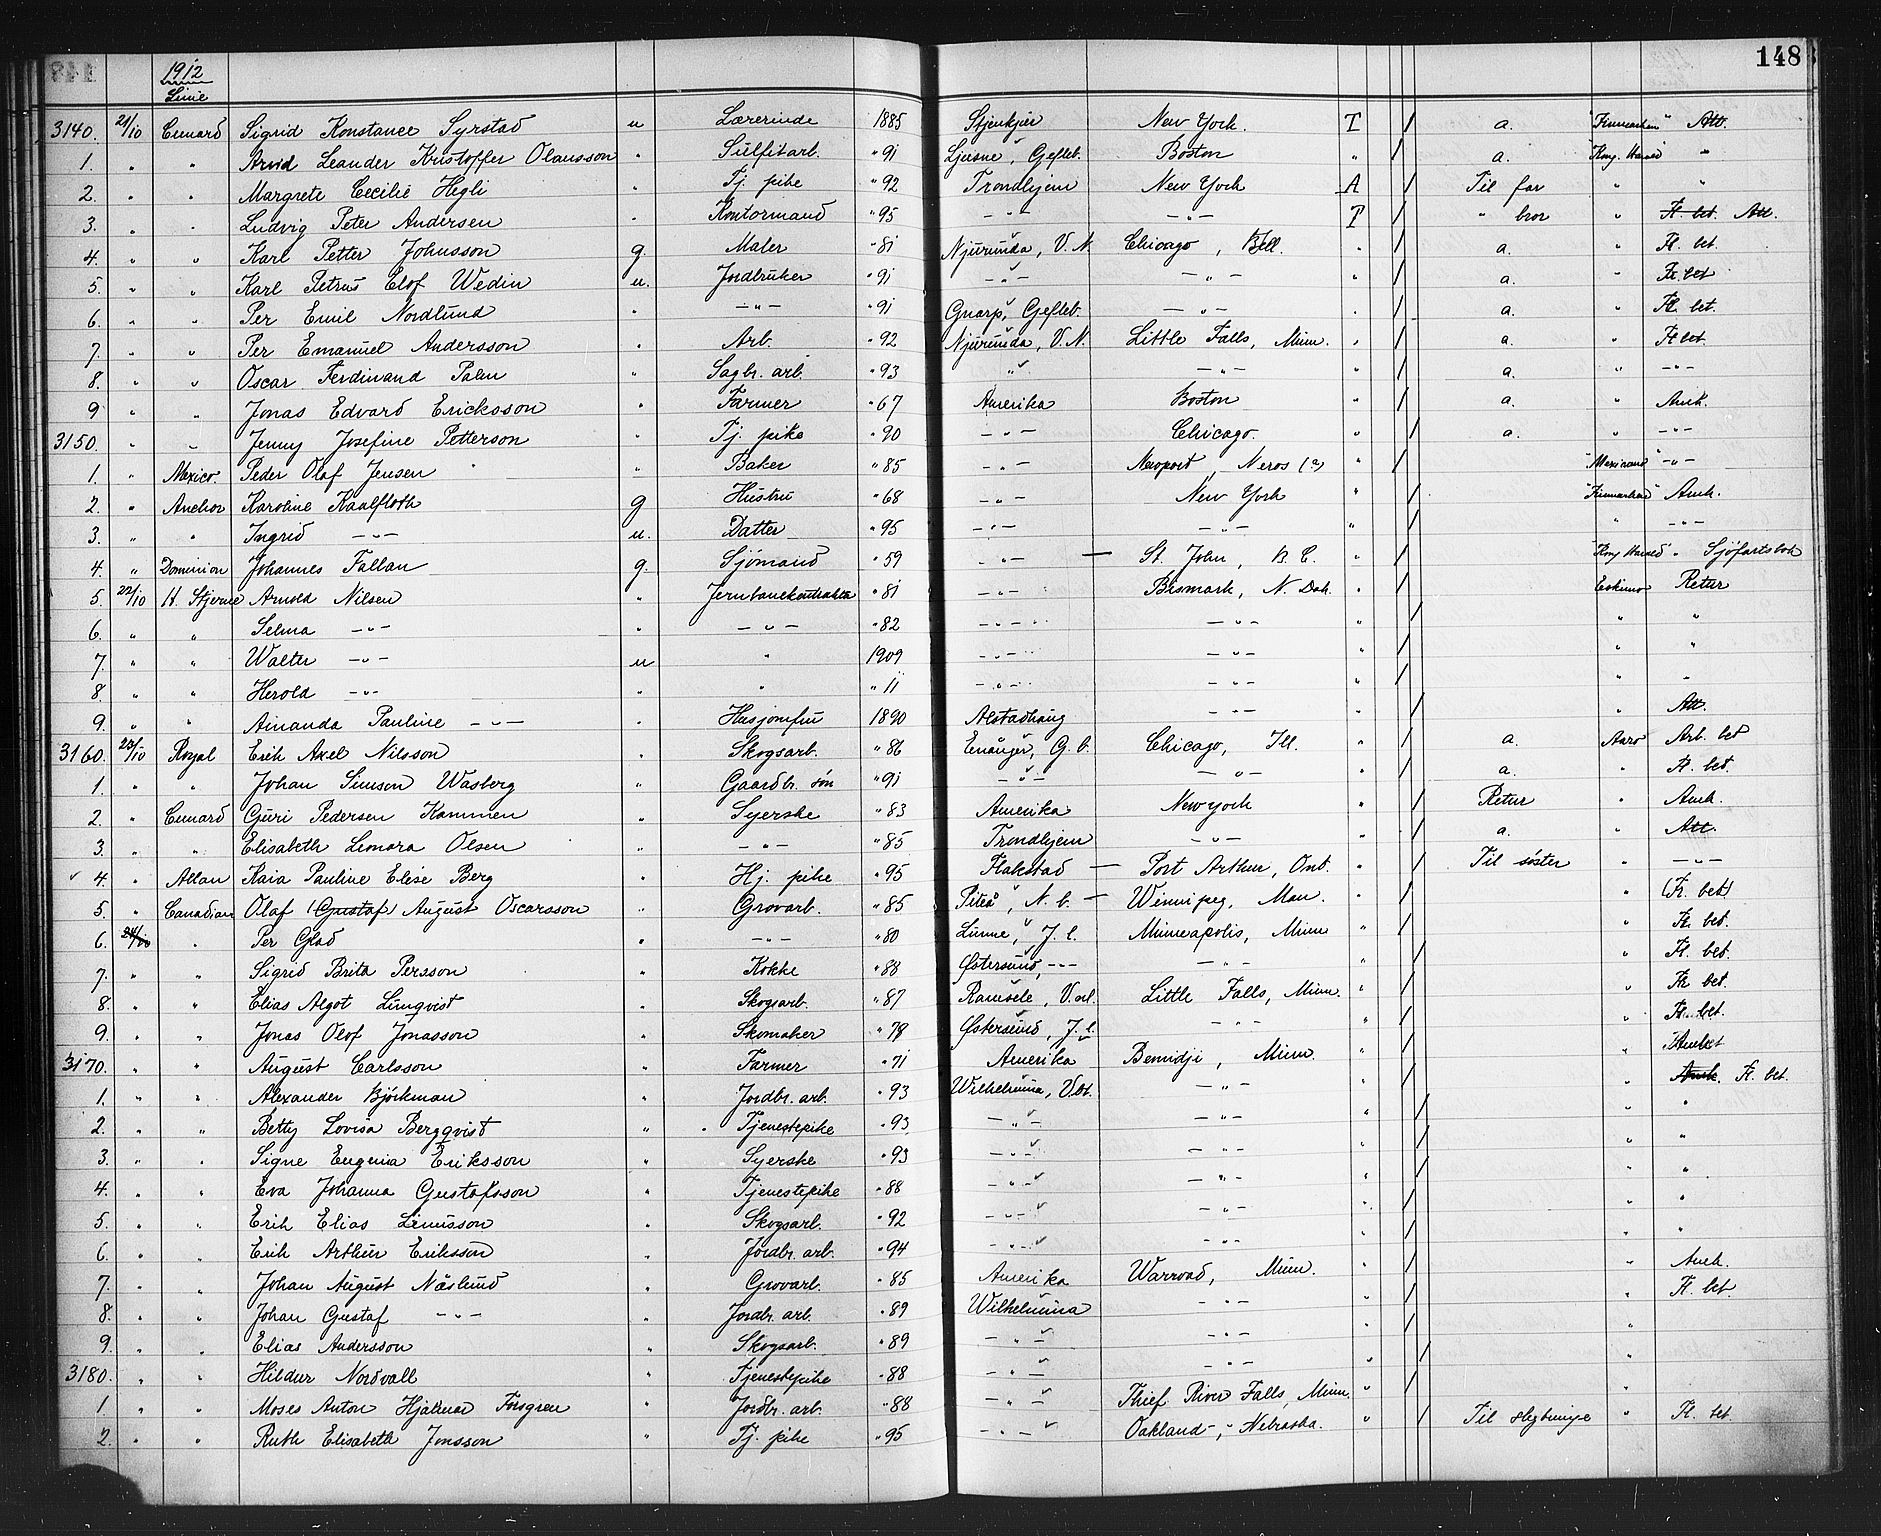 148
1912
Linie
3140. 21/10 Cunard Sigrid Konstance Syrstad u Lærerinde 1885 Stjenkjær New York. T / a. "Finmarken" Att.
1. " " Arvid Leander Kristoffer Olausson " Sulfitarb. " 91 Ljusne, Gefleb. Boston " / a. "Kong Harald" "
2. " " Margrete Cecilie Hegli " Tj. pike " 92 Trondhjem New York A / Til far " "
3. " " Ludvig Peter Andersen " Kontormand " 95 - " - - " - T / " bror " Fl. bet. Att.
4. " " Karl Petter Johnsson g. Maler " 81 Njurunda, V. N. Chicago, Ill. " / a. " Fl. bet.
5. " " Karl Petrus Elof Wedin u. Jordbruker " 91 - " - - " - " / a. " Fl. bet
6. " " Per Emil Nordlund " - " - " 91 Gnarp, Gefleb. - " - " / a. " Fl. bet.
7. " " Per Emanuel Andersson " Arb. " 92 Njurunda, V. N. Little Falls, Minn. " / a. " Fl bet.
8. " " Oscar Ferdinand Palm " Sagbr. arb. " 93 " - " - " / a. " - " -
9 " " Jonas Edvard Ericksson " Farmer " 67 Amerika Boston " / a. " Amk.
3150. " " Jenny Josefine Petterson " Tj. pike " 90 - " - Chicago. " / a. " - " -
1. " Mexico Peder Olaf Jensen " Baker " 85 - " - Newport, Neros (?) " / "Mexicano" - " -
2. " Anchor Karoline Kaalfloth g Hustru " 68 - " - New York " / "Finmarken" Amk.
3. " " Ingrid - " - u. Datter " 95 - " - - " - " / " - " -
4. " Dominion Johannes Fallan g. Sjømand " 59 - " - — St. John, B. C. " / "Kong Harald" " Sjøfartsbok
5. 22/10 H. Stjerne Arnold Nilsen " Jernbanekontraktør " 81 - " - Bismark, N. Dak. " / Eskimo Retur
6. " " Selma - " - " - " - " 82 - " - - " - " / " "
7. " " Walter - " - u " 1909 - " - - " - " / " "
8. " " Herold - " - " " " 11 - " - - " - " / " "
9. " " Amanda Pauline - " - " Husjomfru 1890 Alstadhaug - " - " / " Att.
3160. 23/10 Royal Erik Axel Nilsson " Skogsarb. " 86 Enånger, G. b. Chicago, Ill. " / a. Aaro Arb. bet
1. " " Johan Simson Wasberg " Gaardbr. søn " 91 - " - - " - " / a. " Fl. bet.
2. " Cunard Guri Pedersen Kammen " Syerske " 83 Amerika New york " / Retur " Amk.
3. " " Elisabeth Lenora Olsen " - " - " 85 Trondhjem - " - " / a. " Att.
4. " Allan Kaia Pauline Elise Berg " Hj. pike " 95 Flakstad — Port Arthur, Ont. " / Til søster " - " -
5. " Canadian Olaf (Gustaf) August Oscarsson " Grovarb. " 85 Piteå, N. b. — Winnipeg, Man. " / " (Fl. bet)
6. 24/10 " Per Glad " - " - " 80 Lunne, J. l. Minneapolis, Minn " / " Fl. bet.
7. " " Sigrid Brita Persson " Kokke " 88 Østersund, - " - - " - " / " Fl. bet.
8. " " Elias Algot Lunqvist " Skogsarb. " 87 Ramsele, V. nl. Little Falls, Minn. " / " Fl. bet.
9. " " Jonas Olof Jonasson " Skomaker " 78 Østersund, J. l. - " - " / " Fl. bet.
3170. " " August Carlsson " Farmer " 71 Amerika Bemidji, Minn. " / "
1. " " Alexander Bjørkman " Jordbr. arb. " 93 Wilhelmina, V.bt. - " - " / " Amk. Fl. bet.
2. " " Betty Lovisa Bergqvist " Tjenestepike " 93 - " - - " - " / " "
3. " " Signe Eugenia Eriksson " Syerske " 93 - " - - " - " / " "
4. " " Eva Johanna Gustafsson " Tjenestepike " 88 - " - - " - " / "
5. " " Erik Elias Linusson " Skogsarb. " 92 - " - - " - " / "
6. " " Erik Arthur Eriksson " Jordbr. arb. " 94 - " - - " - " / "
7. " " Johan August Näslund " Grovarb. " 85 Amerika Warroad, Minn. " / " Amk.
8. " " Johan Gustaf - " - " Jordbr. arb. " 89 Wilhelmina - " - " / " Fl. bet.
9. " " Elias Andersson " Skogsarb. " 89 - " - - " - " / "
3180. " " Hildur Nordvall " Tjenestepike " 88 - " - - " - " / "
1. " " Moses Anton Hjalmar Forsgren " Jordbr. arb. " 88 - " - Thief River Falls, Minn. " / "
2. " " Ruth Elisabeth Jonsson " Tj. pike " 95 - " - Oakland, Nebraska. " / Til slegtninge " Fl. bet.